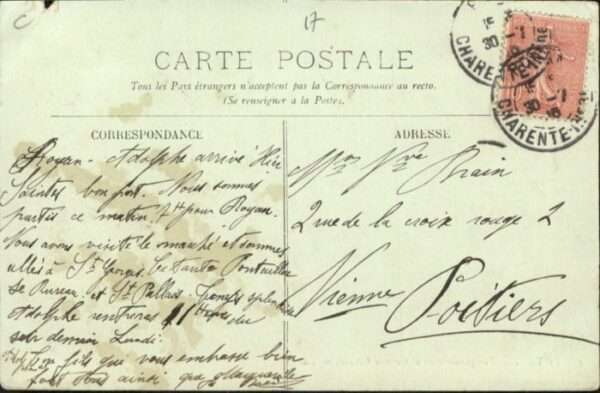 17
CARTE POSTALE
Tous les Pays étrangers n'acceptent pas la Correspondance au recto.
(Se renseigner à la Poste.)
CORRESPONDANCE
Royan - Adolphe arrivé hier
Saintes bon port. Nous sommes
partis ce matin, 7h pour Royan.
Nous avons visité le marché et sommes
allés à St Georges.
de Bureau et St Pallais. Temps splendide
Adolphe rentrera 11h du
soir demain Lundi.
Ton fils que vous embrasse bien
fort tous ainsi que Marguerite
ADRESSE
Mme Vve Brain
2 rue de la croix rouge 2
Vienne Poitiers
CHARENTE-INFRE
30 -1
CHARENTE-INFRE
30 -1